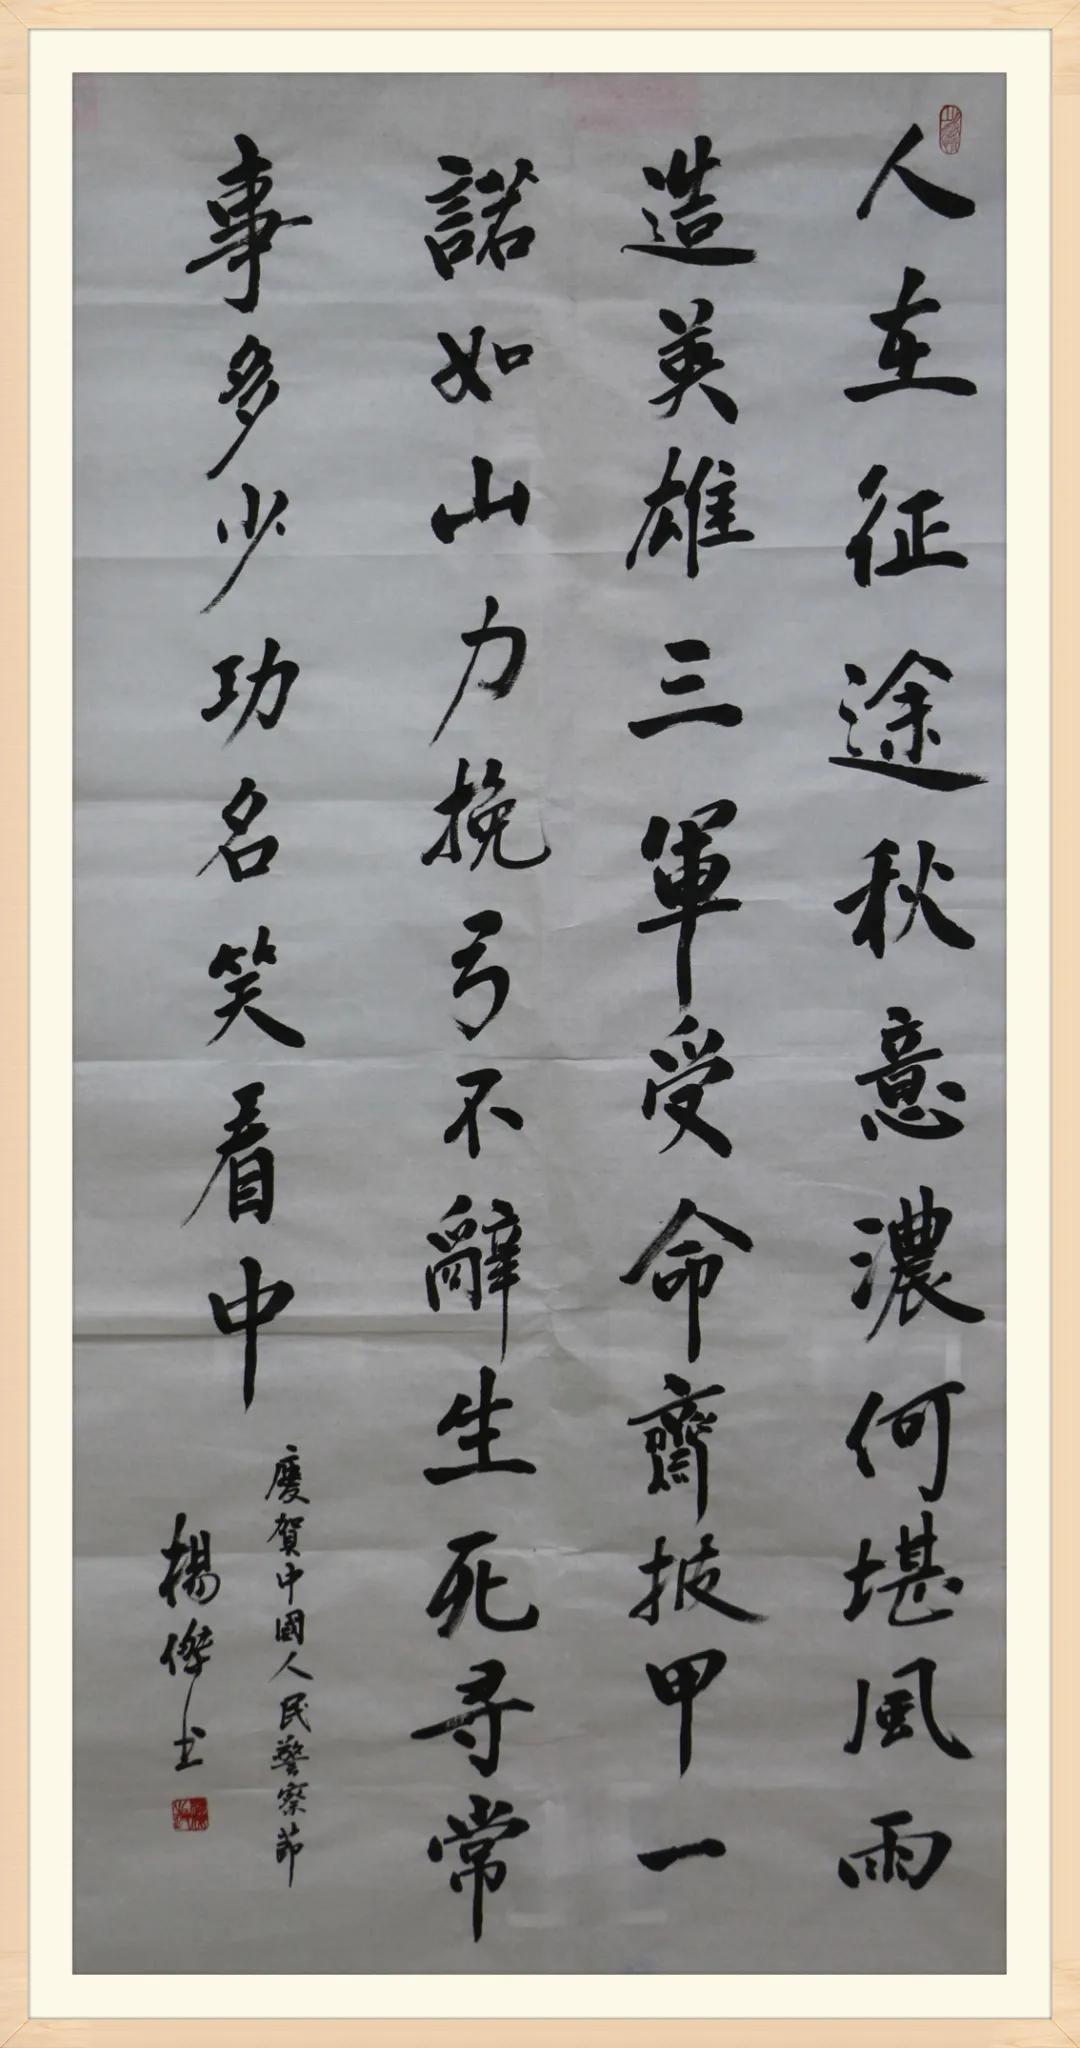 人在征途秋意濃何堪風雨
造英雄三軍受命齊披甲一
諾如山力挽弓不辭生死尋常
事多少功名笑看中
慶賀中國人民警察節
楊傑书